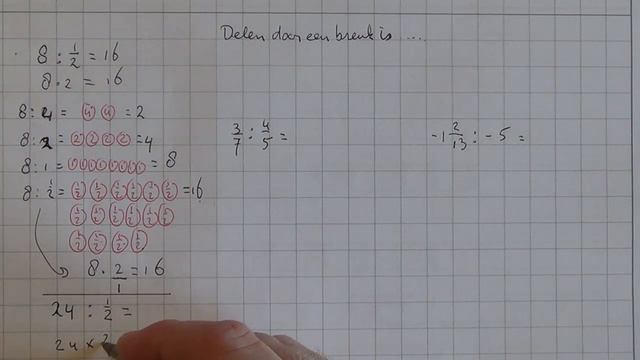 Delen door een breuk is ....
8 : 1/2 = 16
8 · 2 = 16
8 : 4 = 4 4 = 2
8 : 2 = 2 2 2 2 = 4
8 : 1 = 1 1 1 1 1 1 1 1 = 8
8 : 1/2 = 1/2 1/2 1/2 1/2 1/2 1/2 = 16
1/2 1/2 1/2 1/2 1/2 1/2
1/2 1/2 1/2 1/2
8 · 2/1 = 16
24 : 1/2 =
24 × 2
3/7 : 4/5 =
-1 2/13 : -5 =